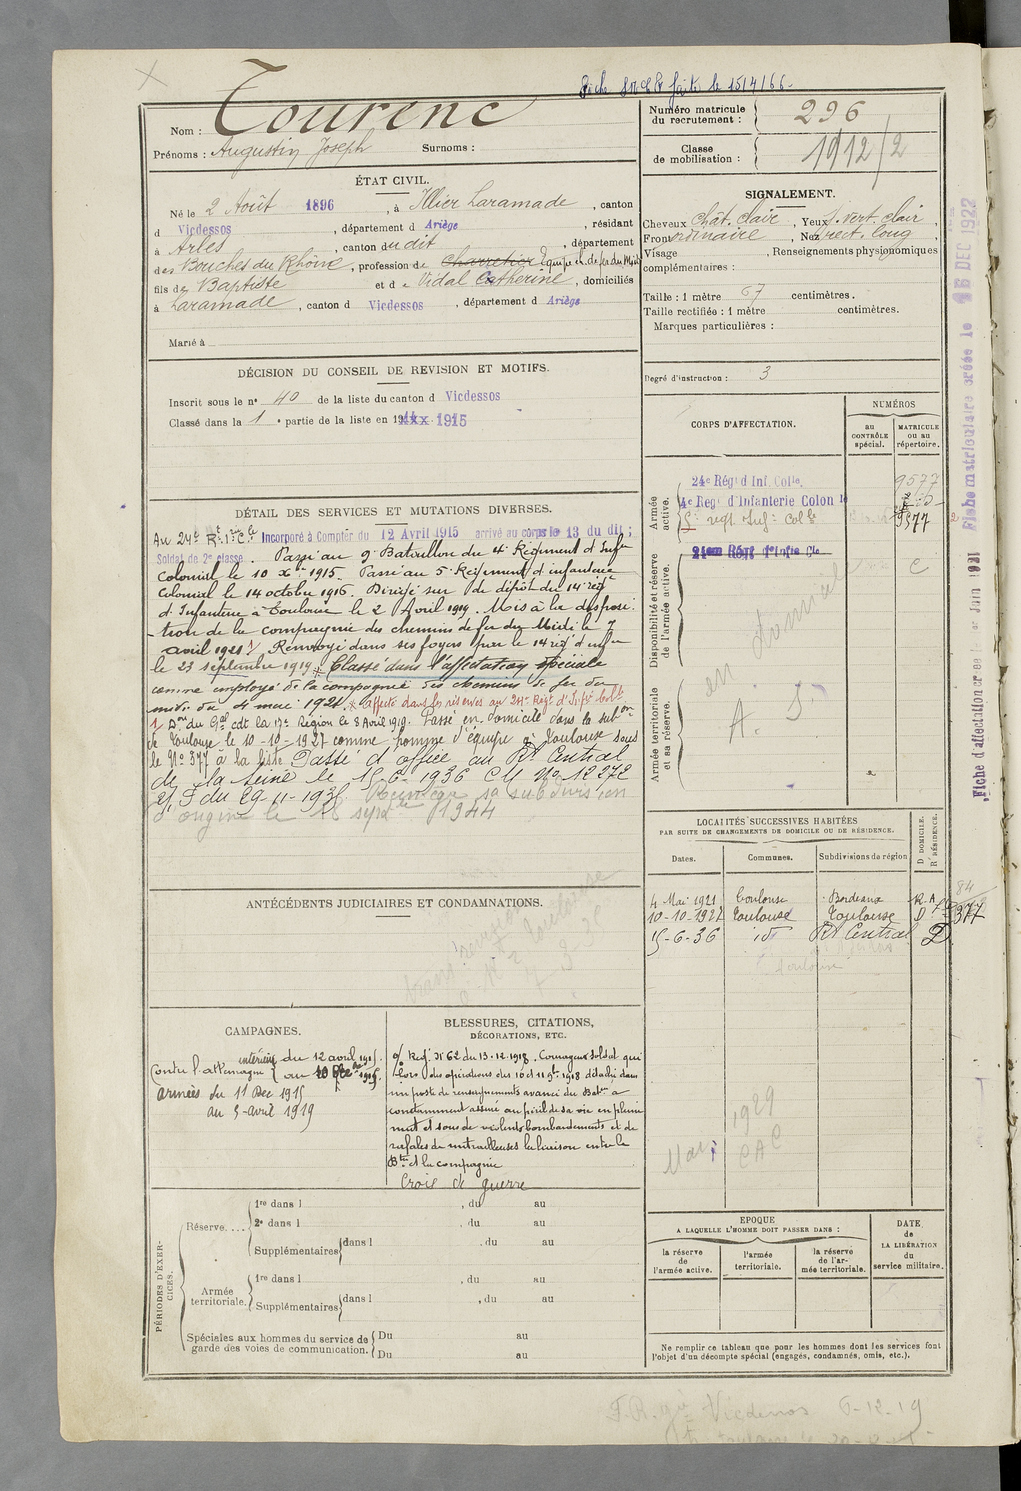 Fiche faite le 15/4/66-
Nom : Tourenc
Prénoms : Augustin Joseph Surnoms :
Numéro matricule du recrutement : 296
Classe de mobilisation : 1912/2
ÉTAT CIVIL.
Né le 2 Août 1896, à Illier Laramade, canton
d Vicdessos, département d Ariège, résidant
à Arles, canton du dit, département
des Bouches du Rhône, profession de Charretier Equipe ch. de fer du Midi
fils de Baptiste et de Vidal Catherine, domiciliés
à Laramade, canton d Vicdessos, département d Ariège
Marié à
SIGNALEMENT.
Cheveux chât. clair, Yeux vert clair,
Front ordinaire, Nez rect. long,
Visage , Renseignements physionomiques
complémentaires :
Taille : 1 mètre 67 centimètres.
Taille rectifiée : 1 mètre centimètres.
Marques particulières :
Degré d'instruction : 3
DÉCISION DU CONSEIL DE REVISION ET MOTIFS.
Inscrit sous le n° 40 de la liste du canton d Vicdessos
Classé dans la 1e partie de la liste en 1915
DÉTAIL DES SERVICES ET MUTATIONS DIVERSES.
Au 24e Rt Ie Cle Incorporé à Compter du 12 Avril 1915 arrivé au corps le 13 du dit ;
Soldat de 2e classe. Passé au 9e Bataillon du 4e Régiment d'Infie
colonial le 10 Xbre 1915. Passé au 5e Régiment d'infanterie
colonial le 14 octobre 1916. Dirigé sur le dépôt du 14e régt
d'Infanterie à Toulouse le 2 Avril 1919. Mis à la disposi-
-tion de la compagnie des chemins de fer du Midi le 7
avril 1921. Renvoyé dans ses foyers par le 14e régt d'infie
le 23 septembre 1919. Classé dans l'affectation spéciale
comme employé de la compagnie des chemins de fer du
midi du 4 mai 1921. Affecté dans les réserves au 24e Régt d'Infie Colle
1 Don du Gal cdt la 17e Région le 8 Avril 1919. Passé en domicile dans la subon
de Toulouse le 10-10-1927 comme homme d'équipe à Toulouse sous
le N° 377 à la liste. Passé d'office au Rt Central
de la Seine le 15-6-1936 CM No 12272
du 29-11-1935. sa subdivision
d'origine le 18 septbre 1944
CORPS D'AFFECTATION.
NUMÉROS
au CONTRÔLE spécial.
MATRICULE ou au répertoire.
Armée active.
24e Régt d'Inf. Colle. 9577
4e Régt d'Infanterie Colonle
5e régt Infie Colle 9377
Disponibilité et réserve de l'armée active.
24eme Régt d'Infie Cle
en domicile
Armée territoriale et sa réserve.
A. S.
LOCALITÉS SUCCESSIVES HABITÉES
PAR SUITE DE CHANGEMENTS DE DOMICILE OU DE RÉSIDENCE.
Dates. Communes. Subdivisions de région D DOMICILE. R RÉSIDENCE.
4 Mai 1921 Toulouse Bordeaux R.A 84
10-10-1927 Toulouse Toulouse D 377
15-6-36 id Rt Central D
Toulouse
Mai 1929
CAC
ANTÉCÉDENTS JUDICIAIRES ET CONDAMNATIONS.
CAMPAGNES.
Contre l'allemagne intérieur du 12 avril 1915.
au 10 Xbre 1915.
armées du 11 Dec 1915
au 5-avril 1919
BLESSURES, CITATIONS,
DÉCORATIONS, ETC.
o/ Régt N° 62 du 13.12.1918. Courageux soldat qui
lors des opérations des 10 et 11 9bre 1918 détaché dans
un poste de renseignements avancé du Batn a
constamment assuré au péril de sa vie en pleine
nuit et sous de violents bombardements et de
rafales de mitrailleuses la liaison entre le
Bton et la compagnie
Croix de guerre
PÉRIODES D'EXERCICES.
Réserve....
1re dans l , du au
2e dans l , du au
Supplémentaires dans l , du au
Armée territoriale.
1re dans l , du au
Supplémentaires dans l , du au
Spéciales aux hommes du service de garde des voies de communication.
Du au
Du au
EPOQUE
A LAQUELLE L'HOMME DOIT PASSER DANS :
la réserve de l'armée active.
l'armée territoriale.
la réserve de l'armée territoriale.
DATE de LA LIBÉRATION du service militaire.
Ne remplir ce tableau que pour les hommes dont les services font
l'objet d'un décompte spécial (engagés, condamnés, omis, etc.).
Fiche matriculaire créée le 16 DEC 1922
Fiche d'affectation créée le 1er Juin 1921
F.R. Vicdessos 6-12-19